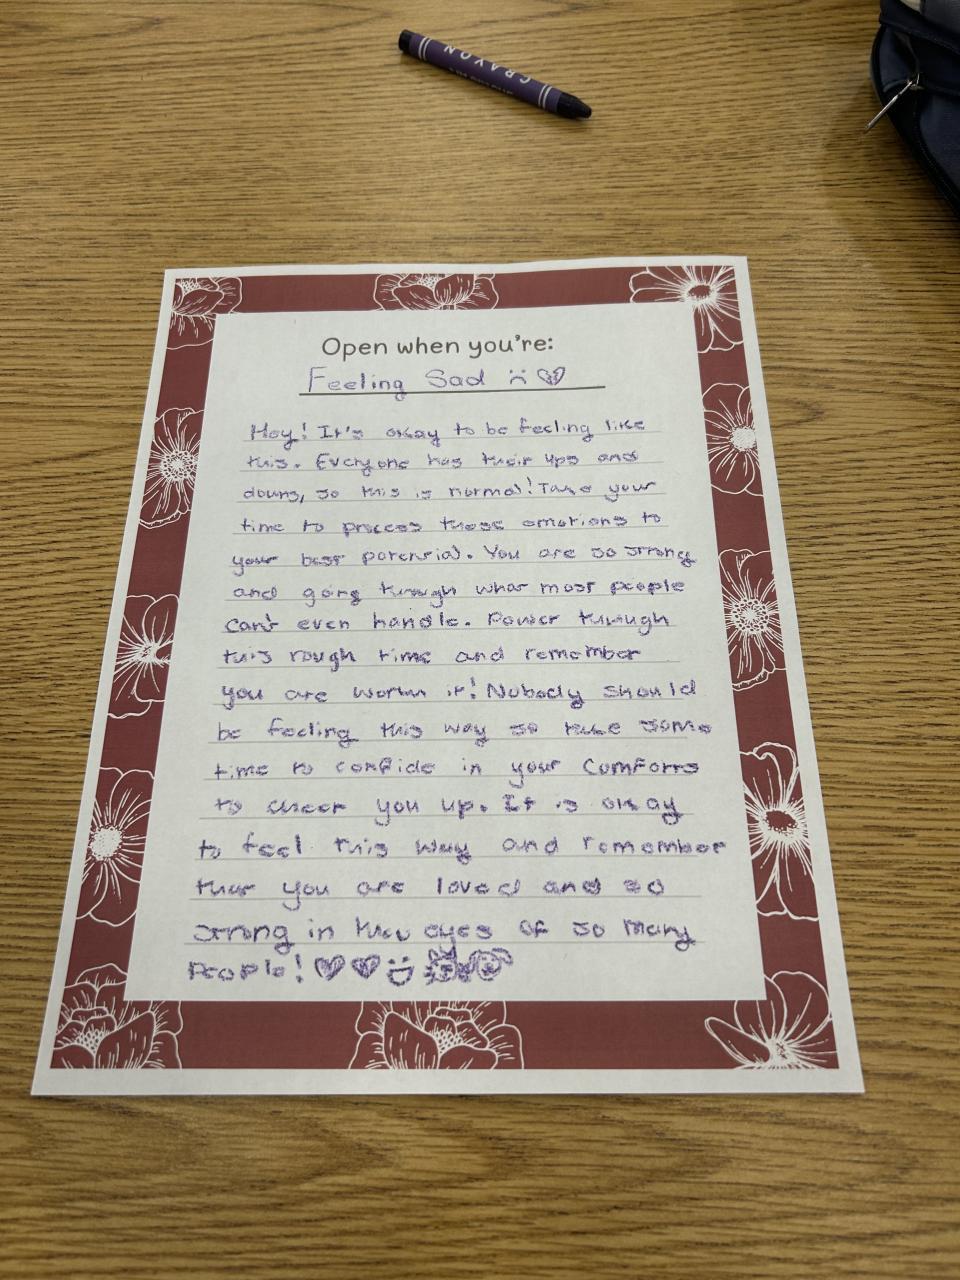 CRAYON
Open when you're:
Feeling Sad
Hey! It's okay to be feeling like
this. Everyone has their ups and
downs, so this is normal! Take your
time to process these emotions to
your best potential. You are so strong
and going through what most people
can't even handle. Power through
this rough time and remember
you are worth it! Nobody should
be feeling this way so take some
time to confide in your comforts
to cheer you up. It is okay
to feel this way and remember
that you are loved and so
strong in the eyes of so many
people!